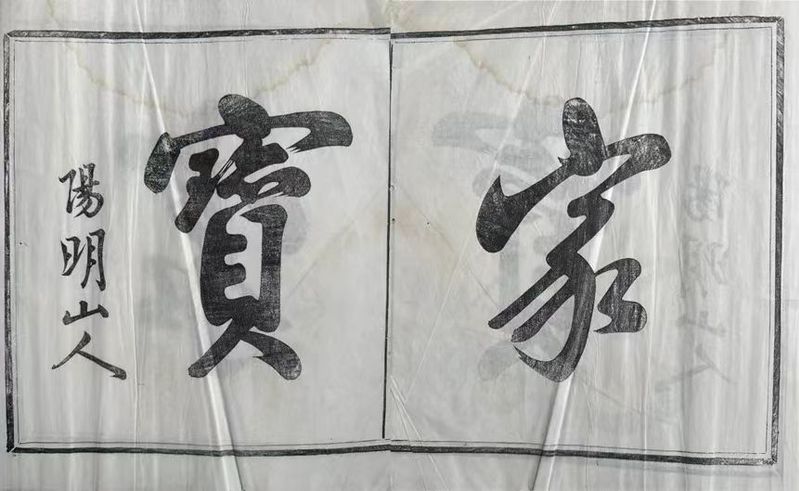 家寶
陽明山人